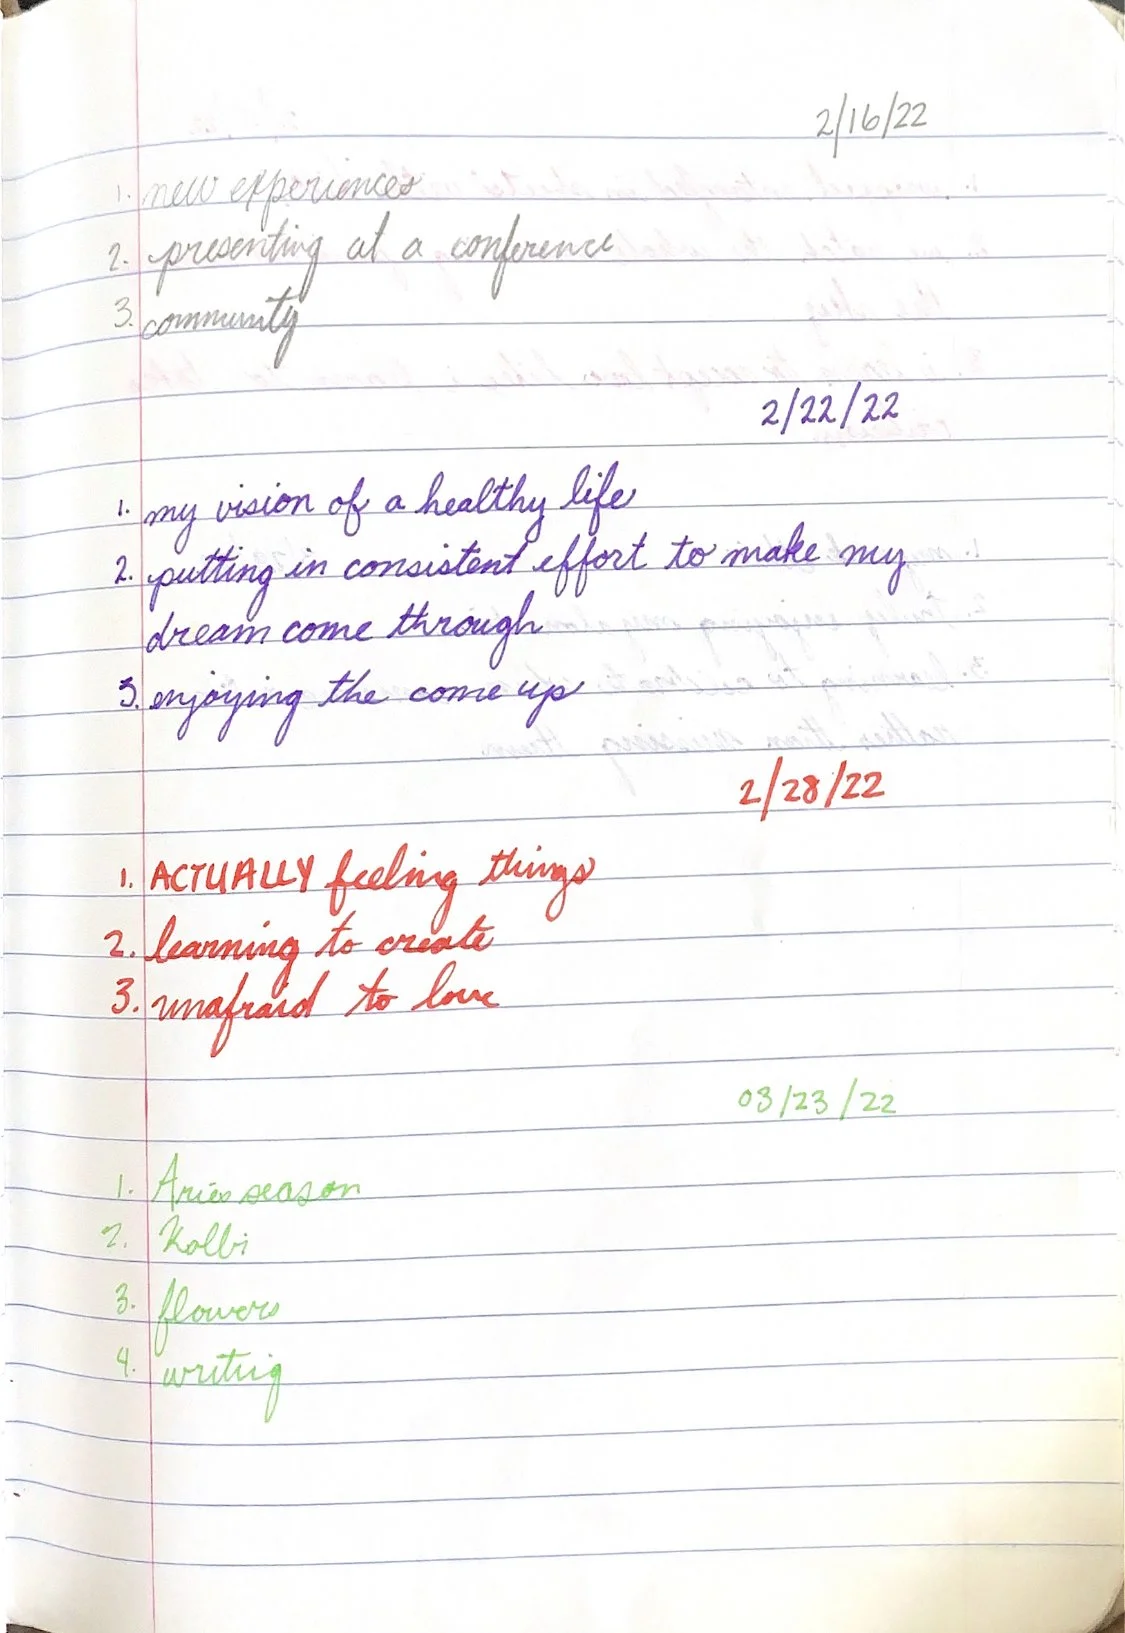 2/16/22
1. new experiences
2. presenting at a conference
3. community
2/22/22
1. my vision of a healthy life
2. putting in consistent effort to make my
dream come through
3. enjoying the come up
2/28/22
1. ACTUALLY feeling things
2. learning to create
3. unafraid to love
03/23/22
1. Aries season
2. Kolbi
3. flowers
4. writing